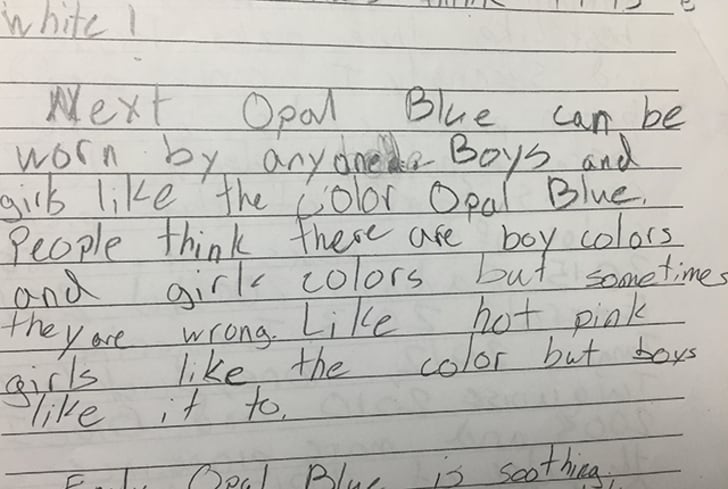 white 1
Next Opal Blue can be
worn by anyone. Boys and
girls like the color Opal Blue.
People think there are boy colors
and girls colors but sometimes
they are wrong. Like hot pink
girls like the color but boys
like it to.
Opal Blue is soothing.